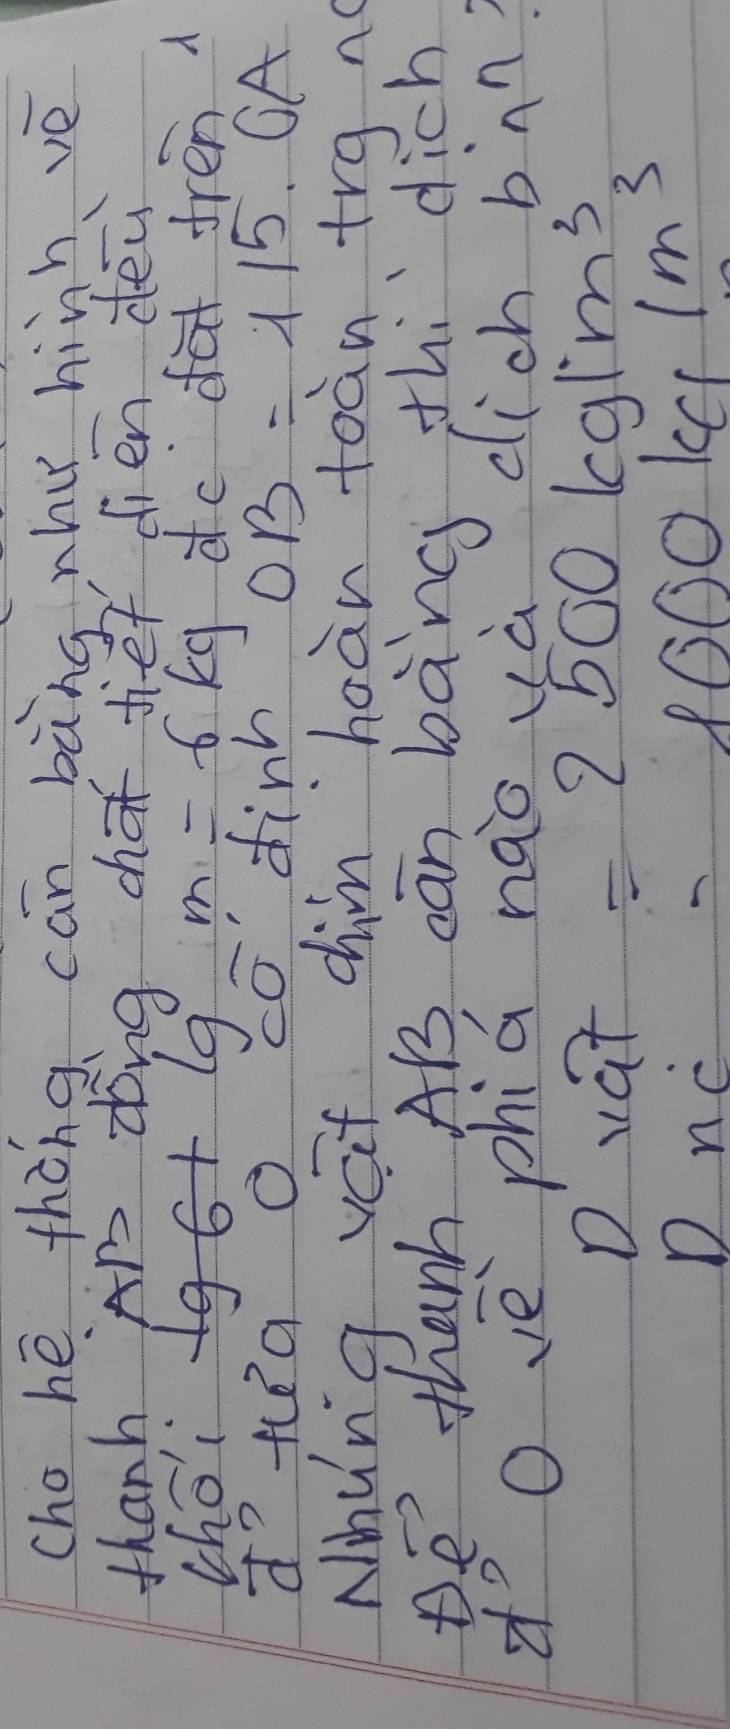 Cho hệ thống cân bằng như hình vẽ
thanh AB đồng chất tiết diện đều
khối lg m = 6 kg đc đặt trên 1
đ² tựa O cố định OB = 1,5. OA
Nhúng vật chìm hoàn toàn trg
Để thanh AB cân bằng thì dịch
đ² O về phía nào và dịch bn?
D vật = 2500 kg/m³
D nc = 1000 kg/m³